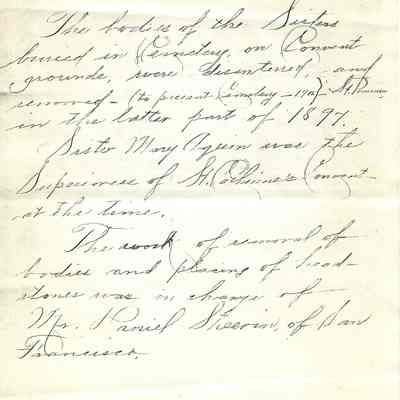 The bodies of the Sisters
buried in Cemetery, on Convent
grounds, were disentered, and
removed - (to present Cemetery -
in the latter part of 1897.
Sister Mary Aquin was the
Superioress of St. Catherine's Convent
at the time.
The work of removal of
bodies and placing of head-
stones was in charge of
Mr. Daniel Sheerin, of San
Francisco.